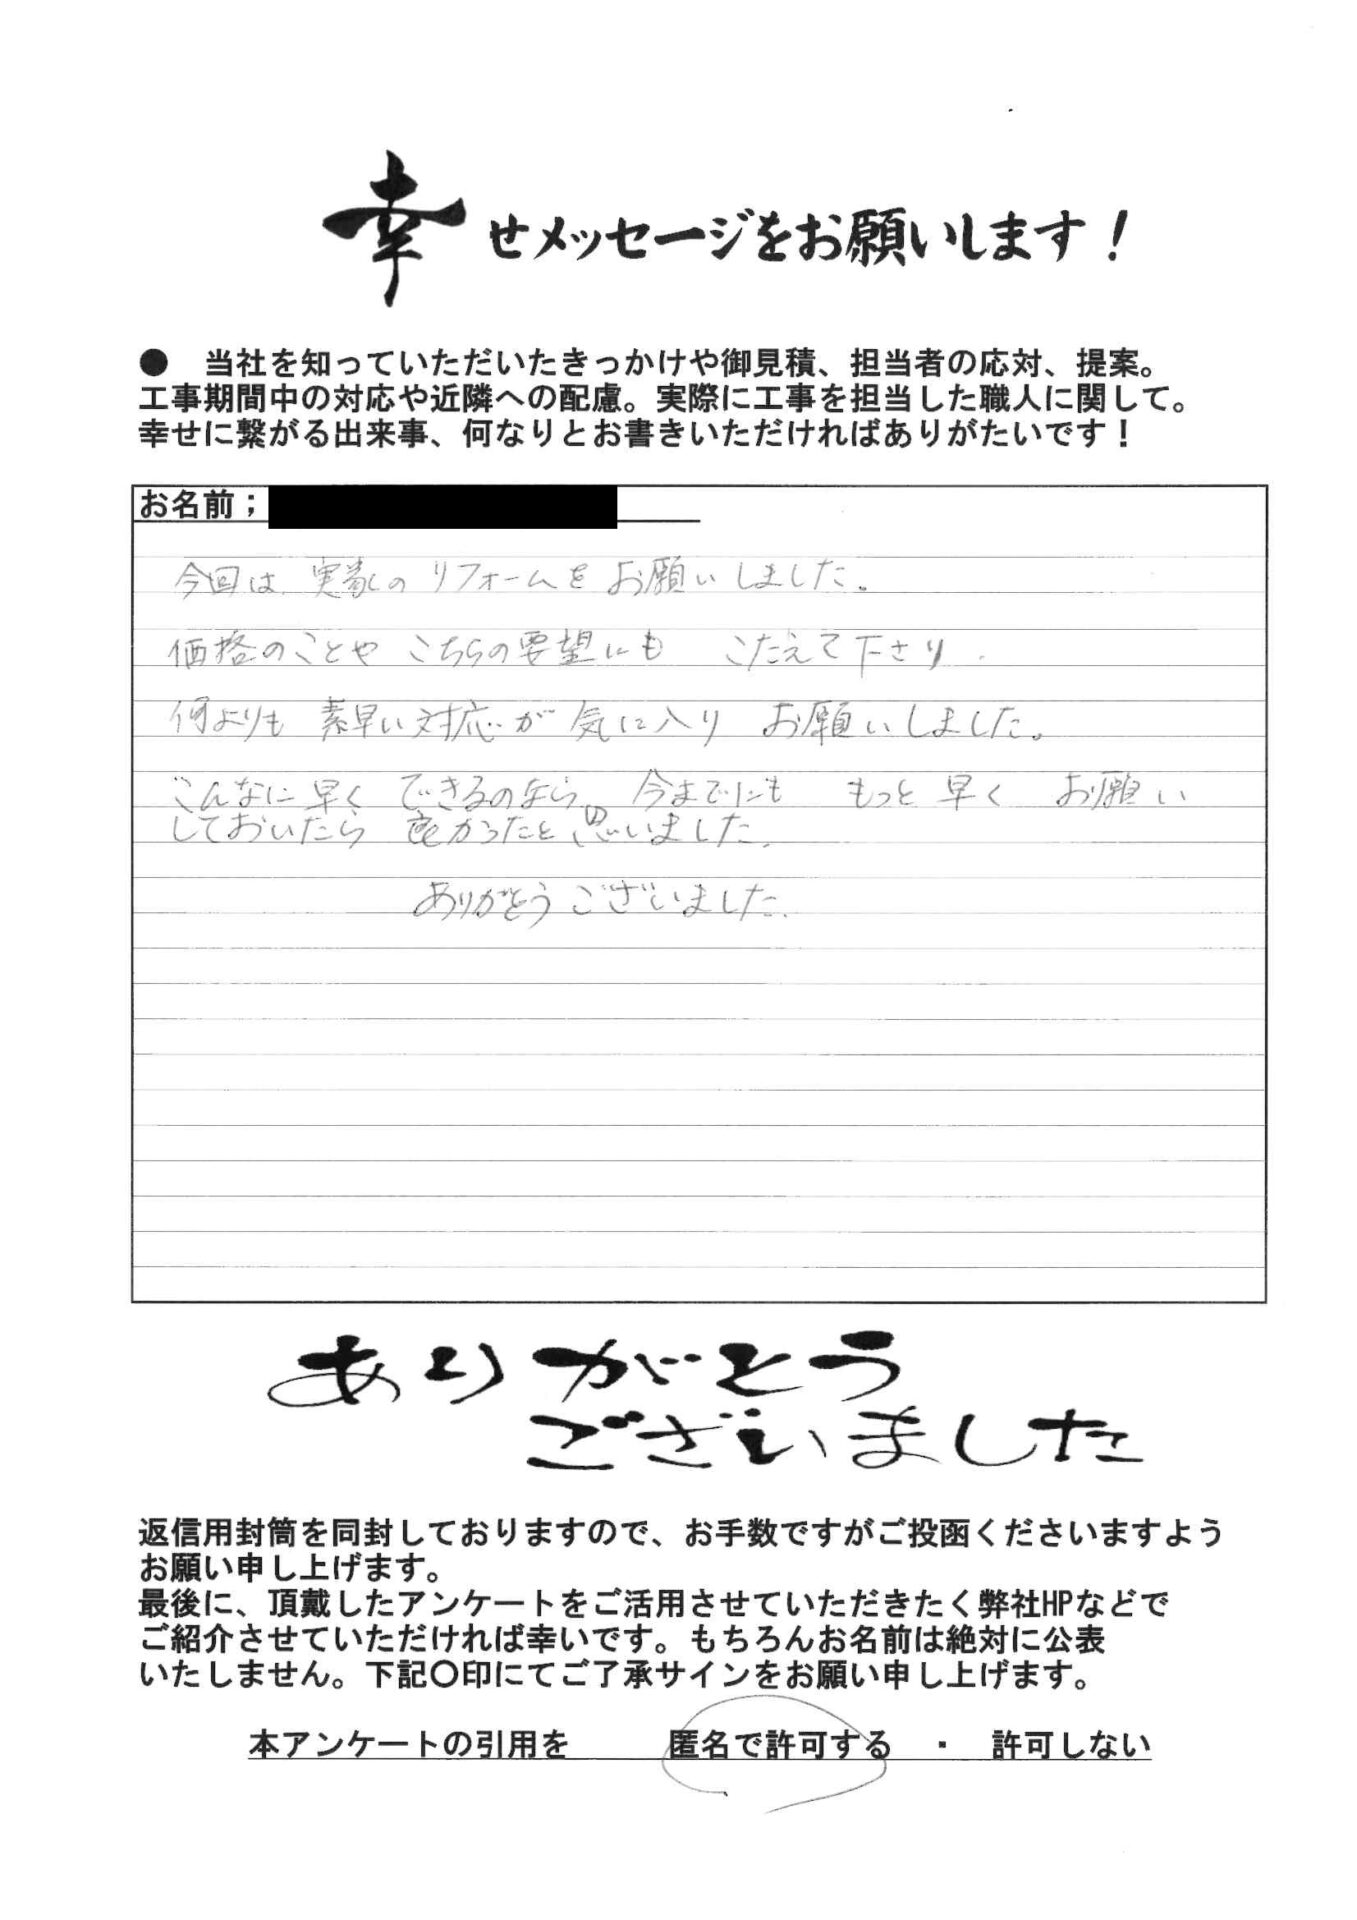 幸せメッセージをお願いします！
● 当社を知っていただいたきっかけや御見積、担当者の応対、提案。
工事期間中の対応や近隣への配慮。実際に工事を担当した職人に関して。
幸せに繋がる出来事、何なりとお書きいただければありがたいです！
お名前；
今回は、実家のリフォームをお願いしました。
価格のことや こちらの要望にも こたえて下さり、
何よりも 素早い対応が 気に入り お願いしました。
こんなに早く できるのなら、今までにも もっと早く お願い
しておいたら 良かったと思いました。
ありがとうございました。
ありがとう
ございました
返信用封筒を同封しておりますので、お手数ですがご投函くださいますよう
お願い申し上げます。
最後に、頂戴したアンケートをご活用させていただきたく弊社HPなどで
ご紹介させていただければ幸いです。もちろんお名前は絶対に公表
いたしません。下記〇印にてご了承サインをお願い申し上げます。
本アンケートの引用を 匿名で許可する ・ 許可しない